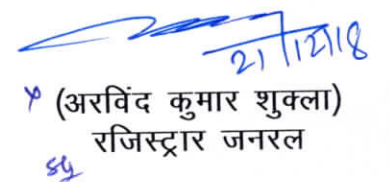 21/12/18
(अरविंद कुमार शुक्ला)
रजिस्ट्रार जनरल